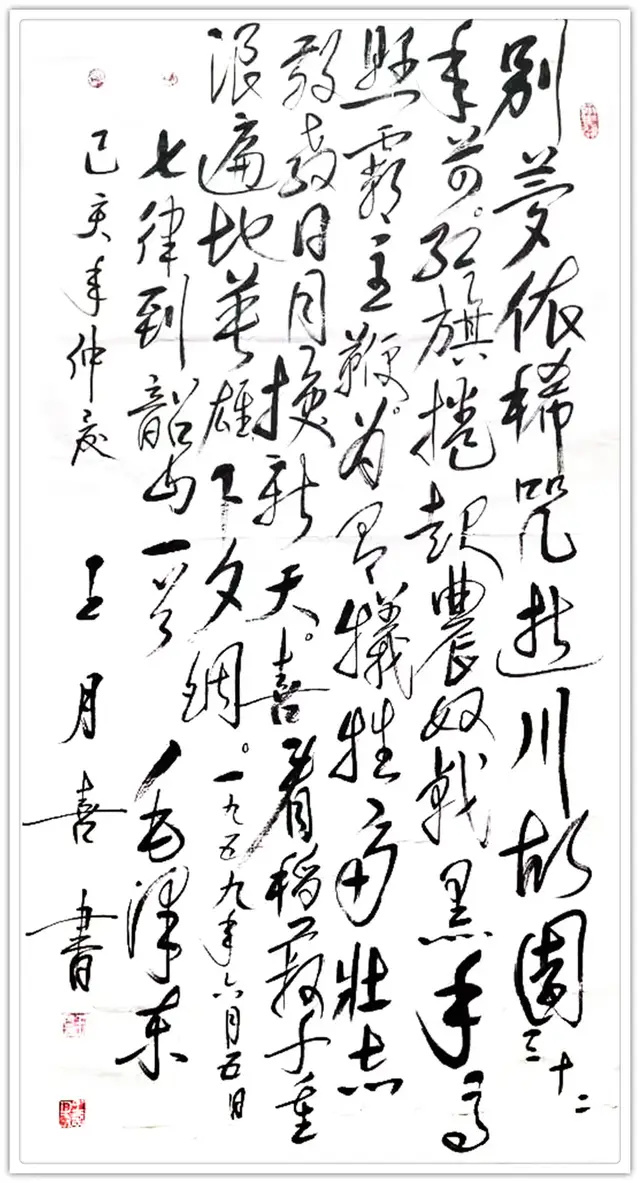 别梦依稀咒逝川故园三十二
年前。红旗捲起農奴戟黑手高
悬霸主鞭。为有犠牲多壮志
敢教日月换新天。喜看稻菽千重
浪遍地英雄下夕烟。一九五九年六月五日
七律到韶山一首 毛泽东
己亥年仲夏 王月喜書